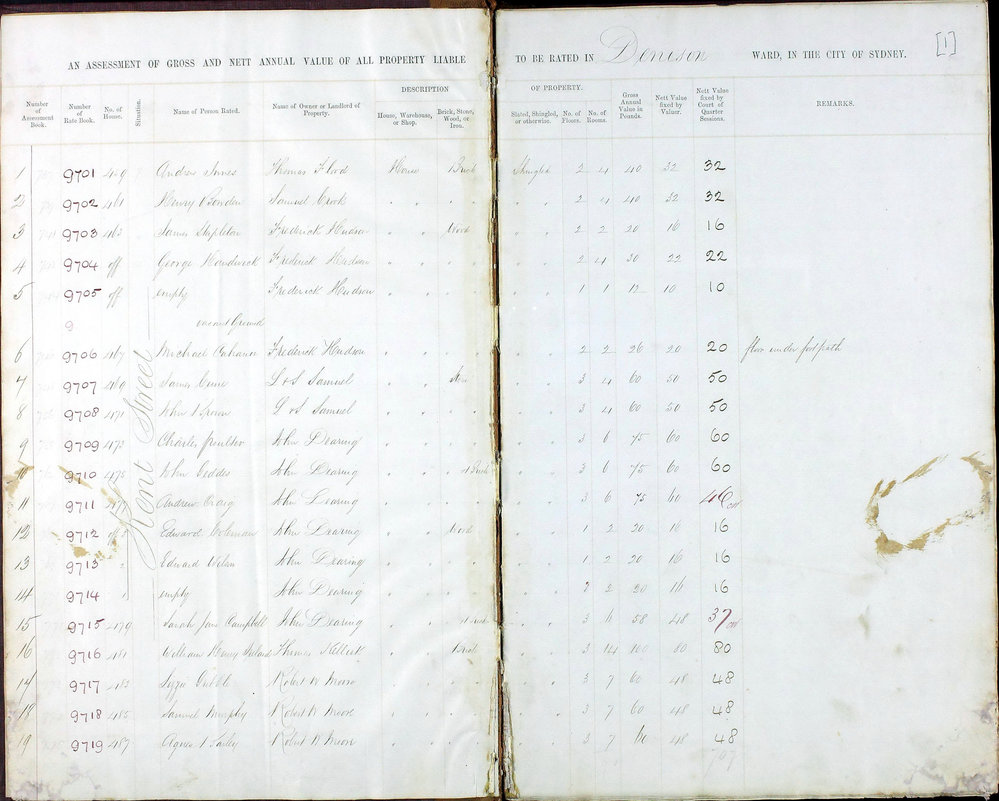 AN ASSESSMENT OF GROSS AND NETT ANNUAL VALUE OF ALL PROPERTY LIABLE TO BE RATED IN Denison WARD, IN THE CITY OF SYDNEY. [1]
DESCRIPTION OF PROPERTY.
Number of Assessment Book. Number of Rate Book. No. of House. Situation. Name of Person Rated. Name of Owner or Landlord of Property. House, Warehouse, or Shop. Brick, Stone, Wood, or Iron. Slated, Shingled, or otherwise. No. of Floors. No. of Rooms. Gross Annual Value in Pounds. Nett Value fixed by Valuer. Nett Value fixed by Court of Quarter Sessions. REMARKS.
Kent Street
1 9701 459 Andrew Innes Thomas Flood House Brick Shingled 2 4 40 32 32
2 9702 461 Henry Bowden Samuel Crook " " " " 2 4 40 32 32
3 9703 463 James Stapleton Frederick Hudson " Wood " " 2 2 20 16 16
4 9704 off George Frederick Hudson " " " " 2 4 30 22 22
5 9705 off empty Frederick Hudson " " " " 1 1 12 10 10
9 vacant Ground
6 9706 467 Michael Frederick Hudson " " " " 2 2 26 20 20 floor under footpath
7 9707 469 James L & S Samuel " " " 3 4 60 50 50
8 9708 471 John L & S Samuel " " " " 3 4 60 50 50
9 9709 473 Charles John Dearing " " " " 3 6 75 60 60
10 9710 475 John Geddes John Dearing " Brick " " 3 6 75 60 60
11 9711 477 Andrew Craig John Dearing " " " " 3 6 75 60 46
12 9712 off Edward Coleman John Dearing " Wood " " 1 2 20 16 16
13 9713 " Edward Wilson John Dearing " " " " 1 2 20 16 16
14 9714 " empty John Dearing " " " " 2 2 20 16 16
15 9715 479 Sarah Jane Campbell John Dearing " " " 3 6 58 48 37
16 9716 481 William Henry Thomas Kellick " Brick " " 3 14 100 80 80
17 9717 483 Lizzie Robert W Moore " " " " 3 7 60 48 48
18 9718 485 Samuel Murphy Robert W Moore " " " " 3 7 60 48 48
19 9719 487 Agnes Robert W Moore " " " " 3 7 60 48 48